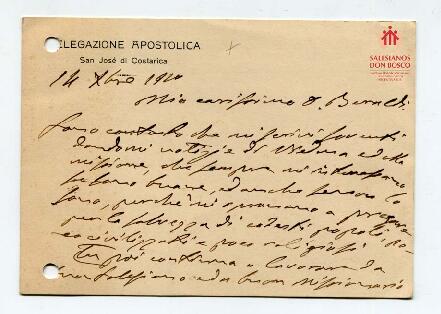 DELEGAZIONE APOSTOLICA
San José di Costarica
SALESIANOS
DON BOSCO
14 Xbre 1920
Mio carissimo D. Beraldi
Sono contento che mi scrivi
dandomi notizie di Viedma e della
missione, che sempre mi
buone, ed anche se non lo
sono, perchè mi spronano a pregare
per la salvezza di cotesti popoli
civilizzati e poco religiosi
Tu poi continua a lavorare da
Salesiano e da buon Missionario